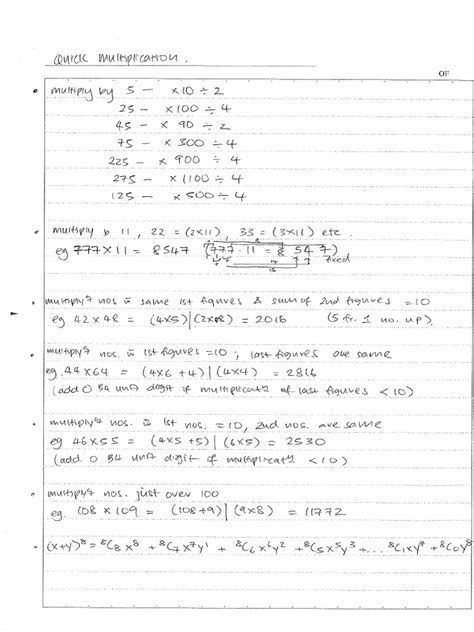 Quick Multiplication.
OF
• multiply by 5 — ×10 ÷ 2
25 — ×100 ÷ 4
45 — × 90 ÷ 2
75 — × 300 ÷ 4
225 — × 900 ÷ 4
275 — × 1100 ÷ 4
125 — × 500 ÷ 4
• multiply by 11, 22 = (2×11), 33 = (3×11) etc.
eg 777×11 = 8547 (777·11 = 8 54 7)
fixed
• multiply nos with same 1st figures & sum of 2nd figures = 10
eg 42×48 = (4×5)|(2×8) = 2016 (5 fr. 1 no. up)
• multiply nos. with 1st figures = 10; last figures are same
eg. 44×64 = (4×6+4)|(4×4) = 2816
(add 0 B4 unit digit if multiplicatn of last figures < 10)
• multiply nos. with 1st nos = 10, 2nd nos. are same
eg 46×55 = (4×5+5)|(6×5) = 2530
(add 0 B4 unit digit if multiplicatn < 10)
• multiply nos. just over 100
eg. 108 × 109 = (108+9)|(9×8) = 11772
• (x+y)⁸ = ⁸C₈x⁸ + ⁸C₇x⁷y¹ + ⁸C₆x⁶y² + ⁸C₅x⁵y³ + ... ⁸C₁xy⁷ + ⁸C₀y⁸